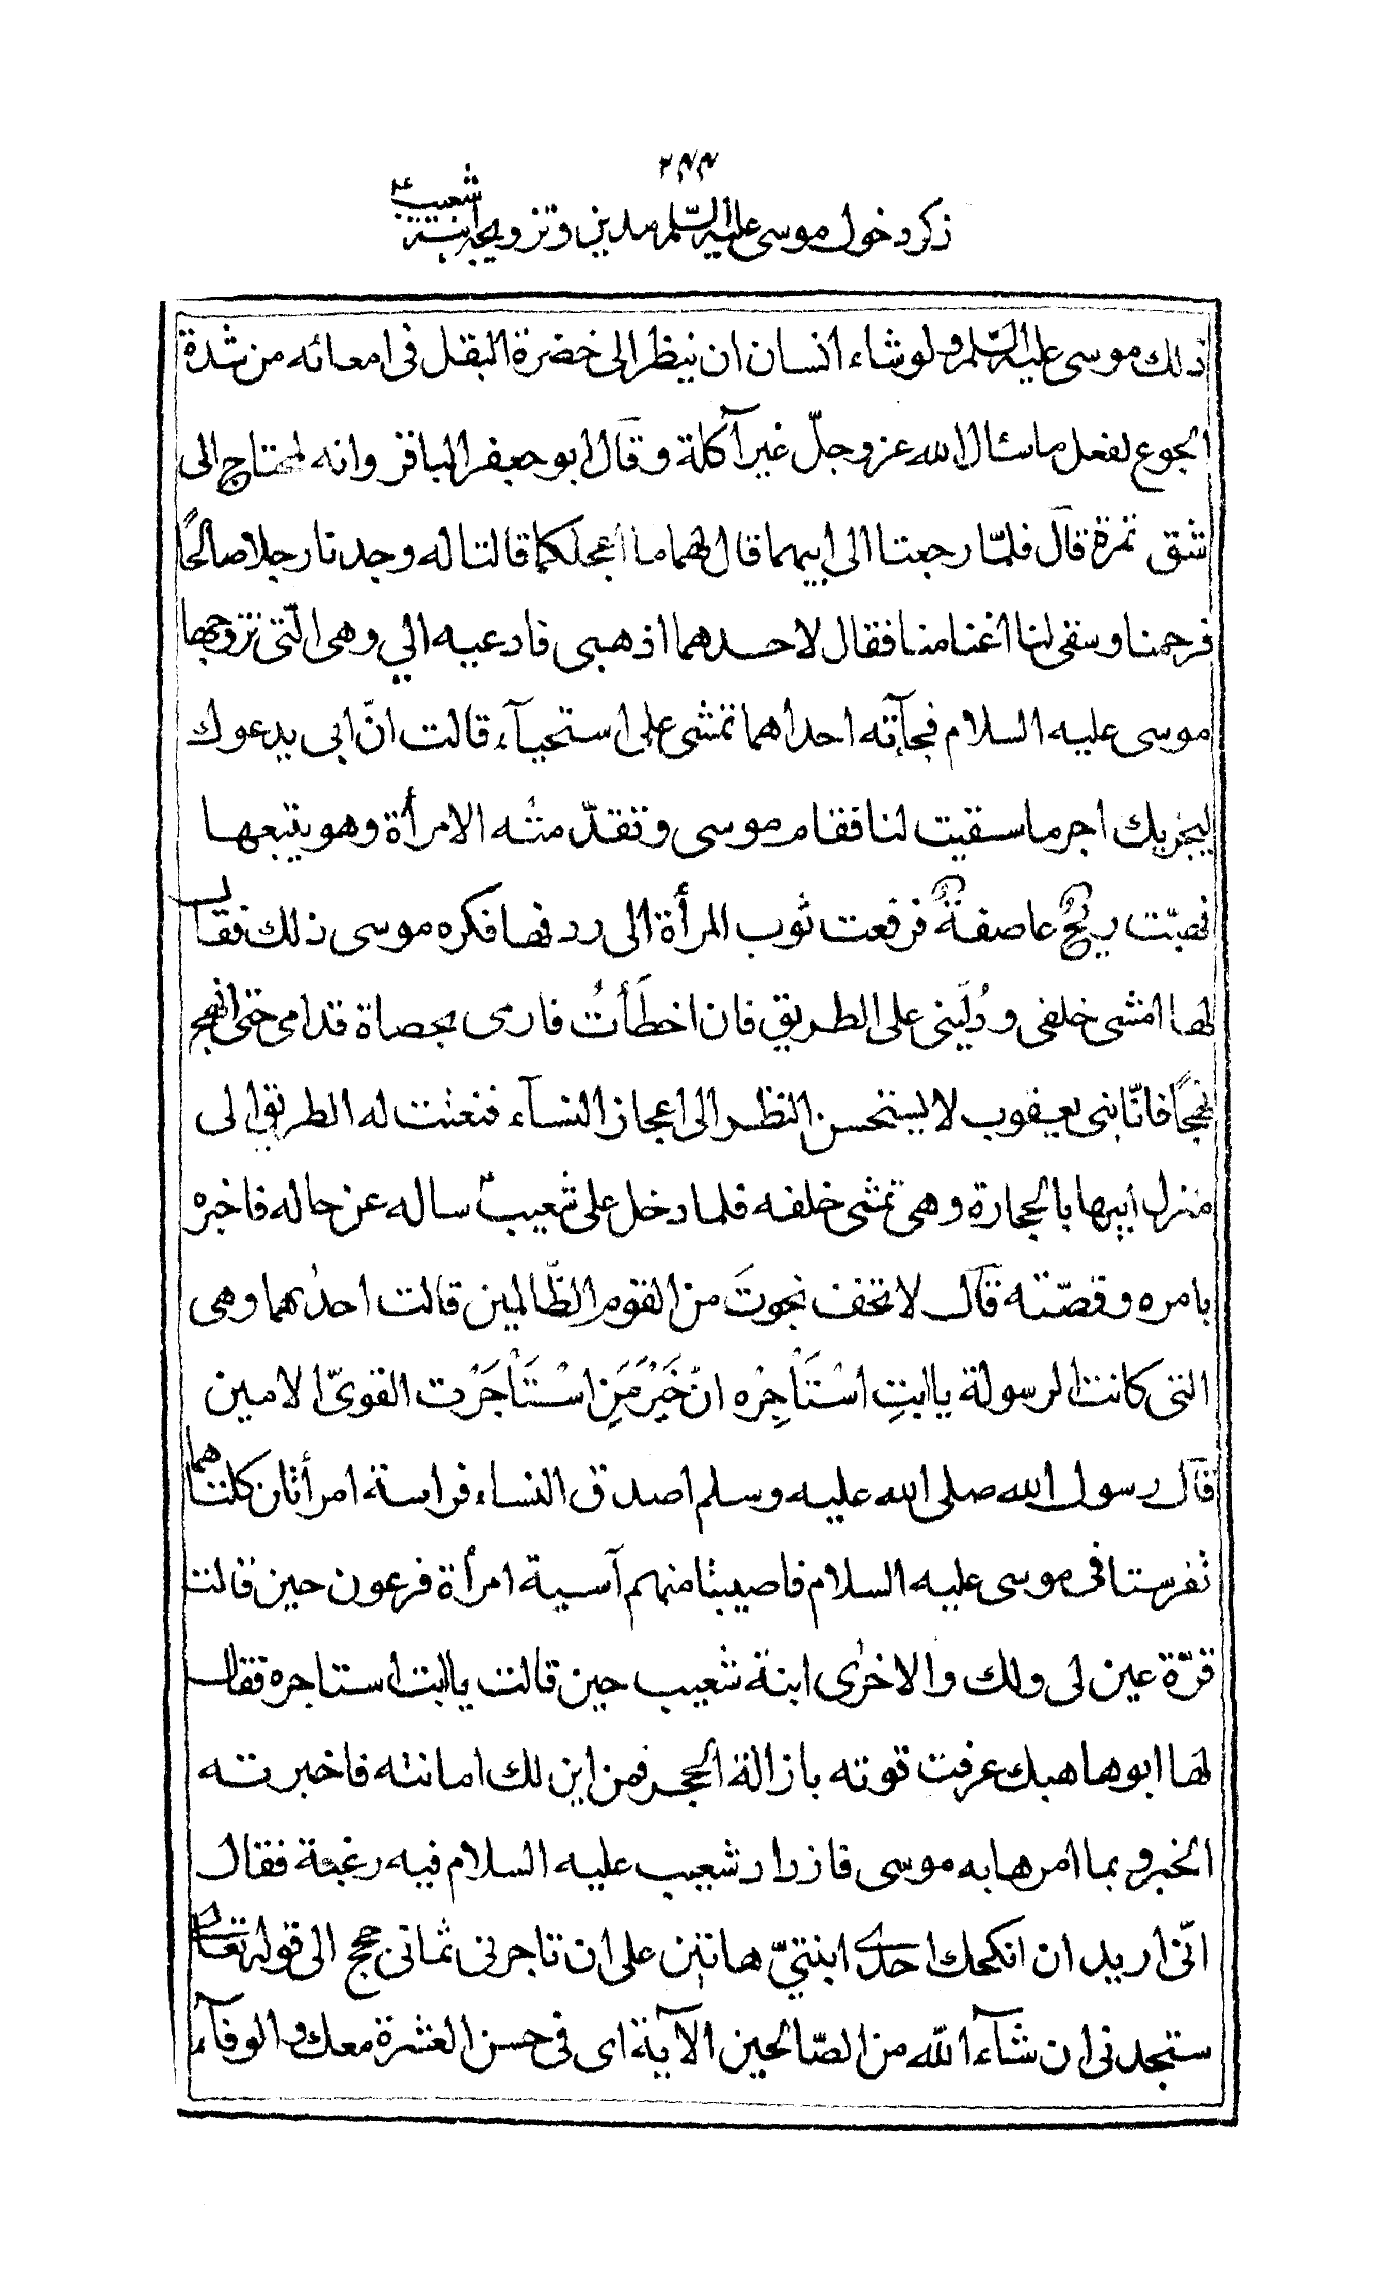 ٢٤٤
ذكر دخول موسى عليه السّلم مدين وتزويجه ابنة شعيب ع
ذلك موسى عليه السّلم ولو شاء انسان ان ينظر الى خضرة البقل فى امعائه من شدة
الجوع لفعل ما سئال الله عز وجلّ غير آكلة وقال ابو جعفر الباقر وانه لمحتاج الى
شق تمرة قال فلمّا رجعتا الى ابيهما قال لهما ما اعجلكما قالتا له وجدنا رجلا صالحًا
فرحمنا وسقى لنا اغنامنا فقال لاحدهما اذهبى فادعيه الي وهى الّتى تزوجها
موسى عليه السلام فجآته احداهما تمشى على استحيآء قالت انّ ابى يدعوك
ليجزيك اجر ما سقيت لنا فقام موسى وتقدّمته الامرأة وهو يتبعها
فهبّت ريحٌ عاصفةٌ فرفعت ثوب المرأة الى ردفها فكره موسى ذلك فقال
لها امشى خلفى ودُلّينى على الطريق فان اخطَأتُ فارمى بحصاة قدامى حتى انهج
نهجًا فانّا بنى يعقوب لا يستحسن النظر الى اعجاز النسآء فنعتت له الطريق الى
منزل ابيها بالحجارة وهى تمشى خلفه فلما دخل على شعيب ساله عن حاله فاخبره
بامره وقصّته قال لا تخف نجوتَ من القوم الظّالمين قالت احدٰيهما وهى
التى كانت الرسولة يا ابتِ اسْتَاْجِرْه انّ خَيْرَ مَنِ اسْتَاْجَرْت القوىّ الامين
قال رسول الله صلى الله عليه وسلم اصدق النساء فراسة امرأتان كلتاهما
تفرستا فى موسى عليه السلام فاصيبتا منهم آسية امرأة فرعون حين قالت
قرّة عين لى ولك والاخرٰى ابنة شعيب حين قالت يا ابت استاجره فقال
لها ابوها هبك عرفت قوته بازالة الحجر فمن اين لك امانته فاخبرته
الخبر وبما امرها به موسى فازداد شعيب عليه السلام فيه رغبة فقال
انّى اريد ان انكحك احدى ابنتيّ هاتين على ان تاجرنى ثمانى حجج الى قوله تعالى
ستجدنى ان شآء الله من الصّالحين الآية اى فى حسن العشرة معك والوفآء